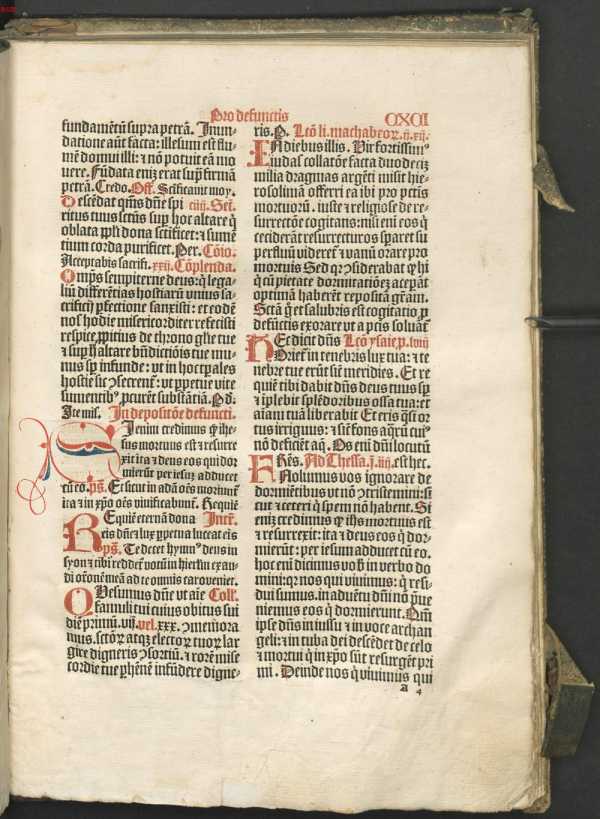 Pro defunctis
CXCI
fundamētū supra petrā. Inun-
datione aūt facta: illesum est flu-
mē domui illi: ⁊ nō potuit eā mo
uere. Fūdata eni; erat sup̄ firmā
petrā. Credo. Off. Scificatur moy.
Descēdat q̄ms dn̄e spi iiij. Secr̄.
ritus tuus sctūs sup̄ hoc altare q̄
oblata ppl̄i dona sctificet: ⁊ sumē
tium corda purificet. Per. Cōio.
Acceptabis sacrifi. xxij. Cōplenda.
Omp̄s sempiterne deus: q̄ lega-
liū differētias hostiarū vnius sa-
crificij p̄fectione sanxisti: et eodē
nos hodie misericorditer refecisti
respice, p̄pitius de throno gl̄ie tue
⁊ sup̄ h̄ altare bn̄dictiōis tue mu-
nus sp̄ infunde: vt in hoc tp̄ales
hostie sit ɔsecrent̄: vt p̄petue vite
sumentib⁹ p̄curēt substātiā. Pd.
Ite mis. In depositōe defuncti.
Si enim credimus q̄ ihe-
sus mortuus est ⁊ resurre
xit ita ⁊ deus eos qui dor
mierūt per iesum adducet
cū eo. ps̄. Et sicut in adā oēs moriunt̄
ita in xp̄o oēs viuificabunt̄. Requiē
Requiē eternā dona Intr̄.
eis dn̄e ⁊ lux p̄petua luceat eis
ps̄. Te decet hymn⁹ deus in
syon ⁊ tibi reddet̄ votū in hierlm̄ exau-
di orōnem eā ad te omnis caro veniet.
Quesumus dn̄e vt aīe Coll.
famuli tui cuius obitus sui
diē primū. vij. vel. xxx. ɔmemora
mus. sctōꝝ atqꝫ electoꝝ tuoꝝ lar
gire digneris ɔsortiū. ⁊ rorē mise
cordie tue p̄hēnē infūdere digne-
ris. P. Lcō li. machabeoꝝ. ij. xij.
In diebus illis. Vir fortissim⁹
iudas collatōe facta duodeciꝫ
milia dragmas argēti misit hie-
rosolimā offerri ea ibi pro pctis
mortuorū. iuste ⁊ religiose de re-
surrectōe cogitans: nisi eni eos q̄
ceciderāt resurrecturos sp̄aret su
perfluū videret̄ ⁊ vanū orare pro
mortuis Sed qꝛ ɔsiderabat q̄ hi
q̄ cū pietate dormitaciōeꝫ acep̄at
optimā haberēt repositā gr̄am.
Sctā q̄ et salubris est cogitatio p̄
defūctis exorare vt a pctis soluāt̄
Hec dicit dn̄s Lcō ysaie. p. lviij
Orief̄ in tenebris lux tua: ⁊ te
nebre tue erūt sic meridies. Et re
quiē tibi dabit dn̄s deus tuus sp̄
⁊ iplebit splēdoribus ossa tua: et
aīam tuā liberabit Et eris q̄si or
tus irriguus: ⁊ sic̄ fons aq̄rū cui⁹
nō deficiēt aq̄. Os eni dn̄i locutū
Fr̄es. Ad Thessa. j. iiij. est hec.
Nolumus vos ignorare de
dormiētibus vt nō ɔtristemini: si
cut ⁊ ceteri q̄ spem nō habent. Si
eniꝫ credimus q̄ ih̄s mortuus est
⁊ resurrexit: ita ⁊ deus eos q̄ dor-
mierūt: per iesum adducet cū eo.
hoc eni dicimus vob̄ in verbo do
mini: q̄ nos qui viuimus: q̄ resi-
dui sumus. in aduētū dn̄i nō p̄ue
niemus eos q̄ dormierunt. Qm̄
ip̄e dn̄s in iussu ⁊ in voce archan
geli: ⁊ in tuba dei descēdet de celo
⁊ mortui q̄ in xp̄o sūt resurgēt pri
mi. Deinde nos q̄ viuimus qui
a 4